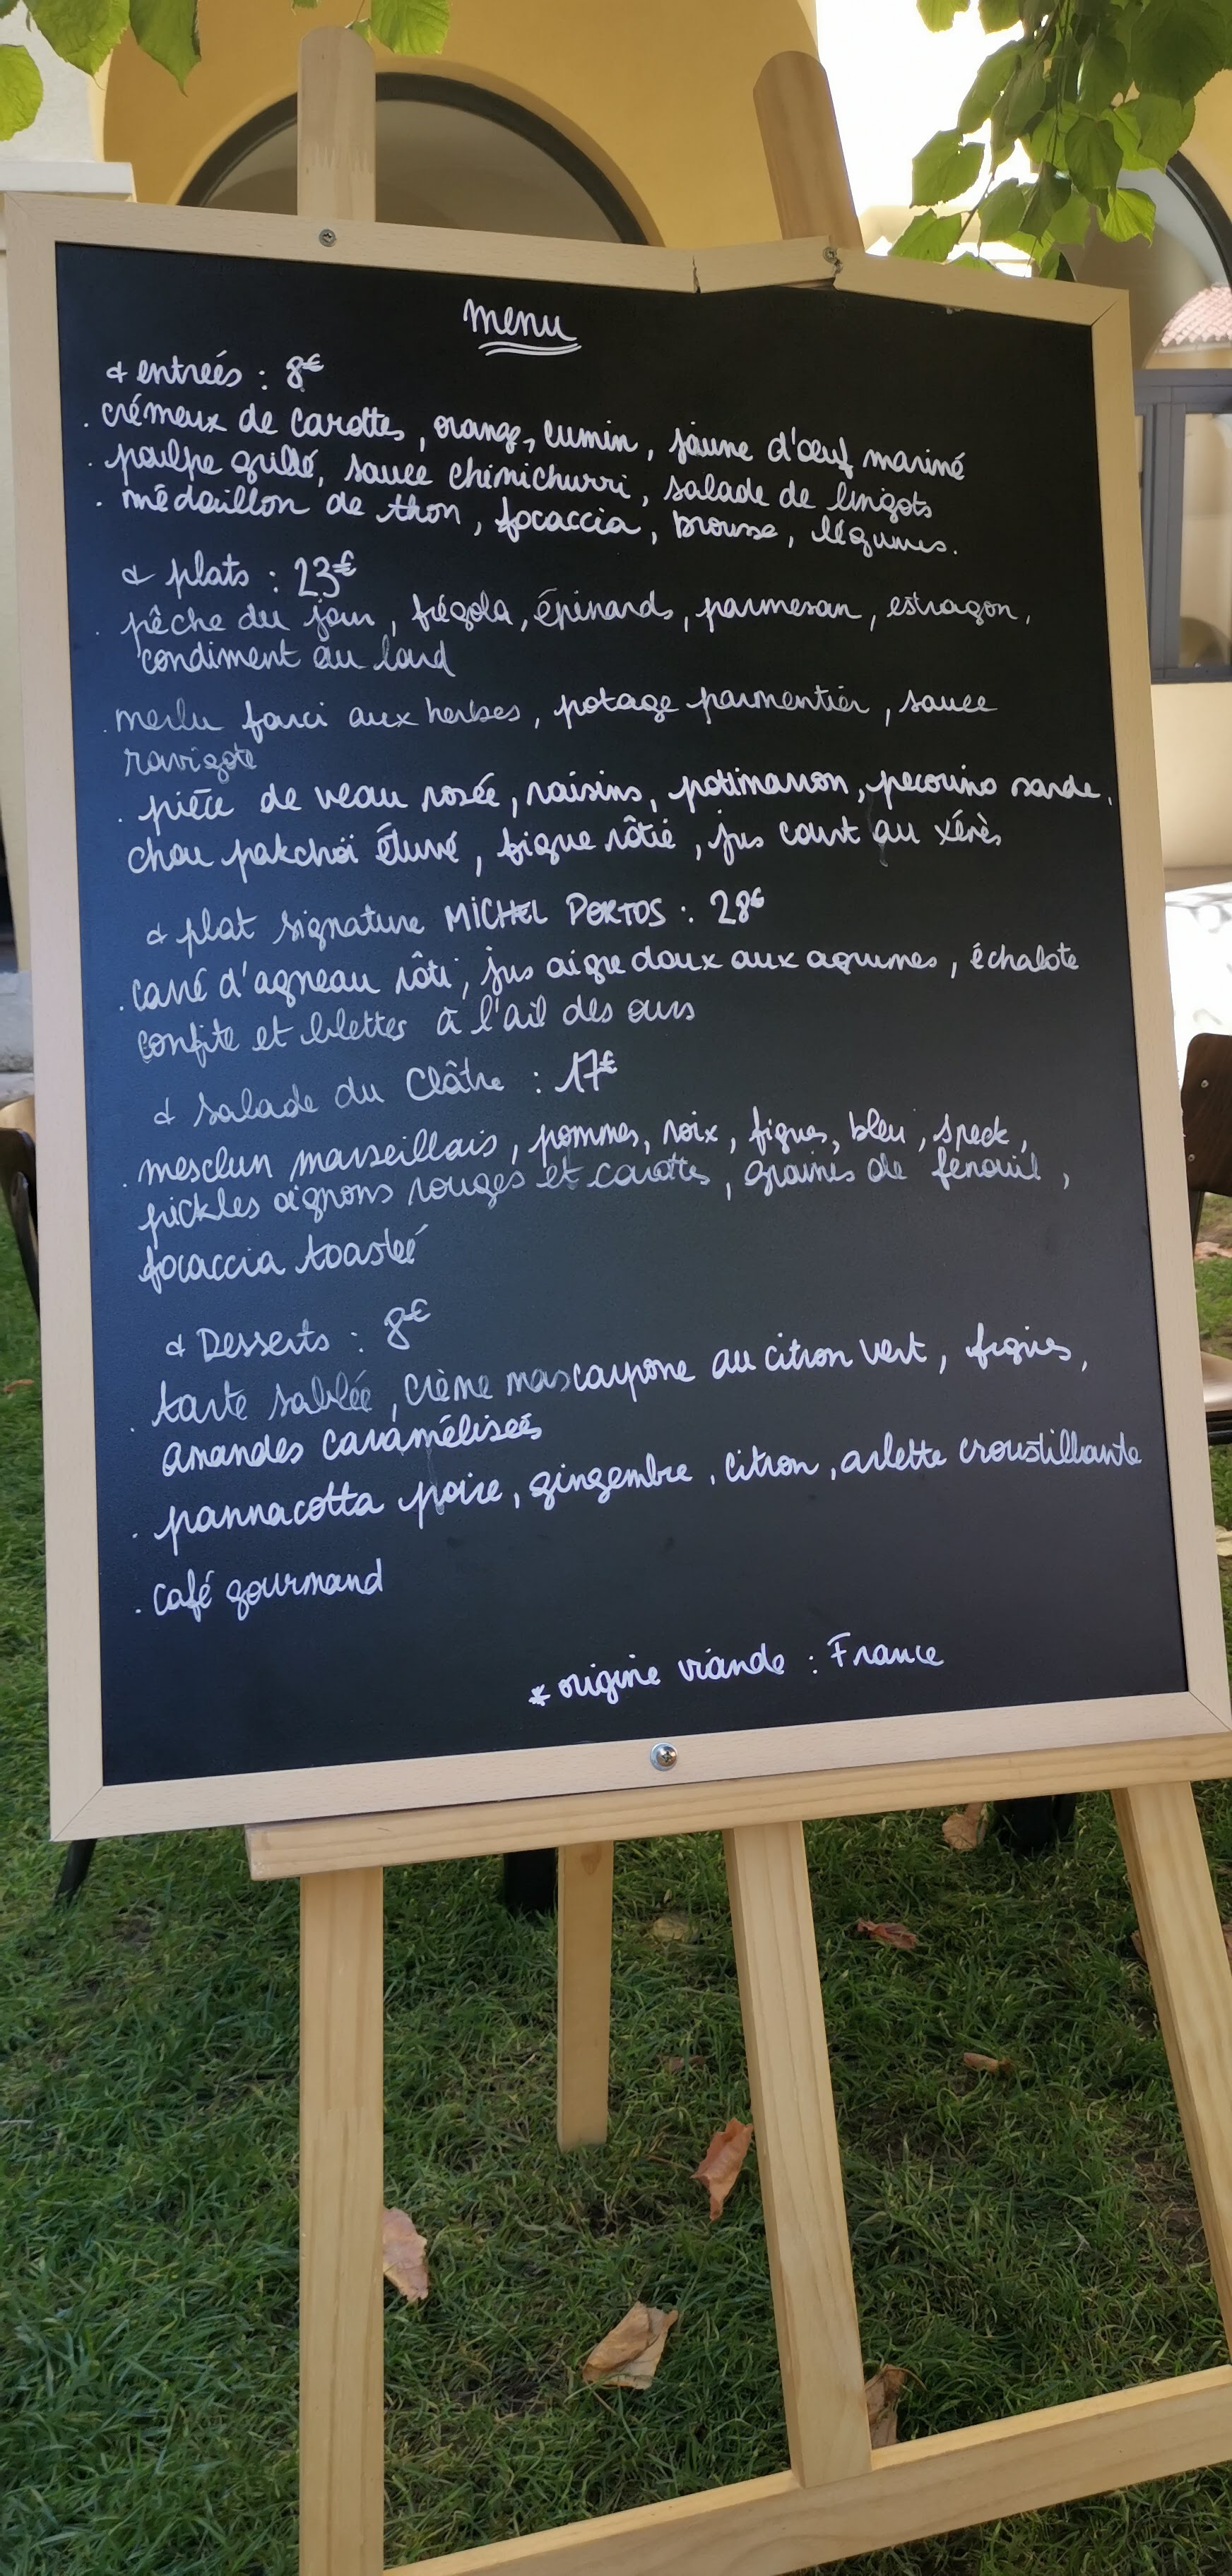 menu
& entreés : 8€
. crémeux de carottes, orange, cumin, jaune d'œuf mariné
. poulpe grillé, sauce chimichurri, salade de lingots
. médaillon de thon, focaccia, brousse, légumes.
& plats : 23€
. pêche du jour, frégola, épinards, parmesan, estragon,
condiment au lard
. merlu farci aux herbes, potage parmentier, sauce
ravigote
. pièce de veau rosée, raisins, potimarron, pecorino sarde,
chou pakchoï étuvé, figue rôtie, jus court au xérès
& plat signature MICHEL PORTOS : 28€
. carré d'agneau rôti, jus aigre doux aux agrumes, échalote
confite et blettes à l'ail des ours
& salade du Cloître : 17€
. mesclun marseillais, pommes, noix, figues, bleu, speck,
pickles oignons rouges et carottes, graines de fenouil,
focaccia toasteé
& Desserts : 8€
. tarte sablée, crème mascarpone au citron vert, figues,
amandes caraméliseés
. pannacotta poire, gingembre, citron, arlette croustillante
. café gourmand
* origine viande : France